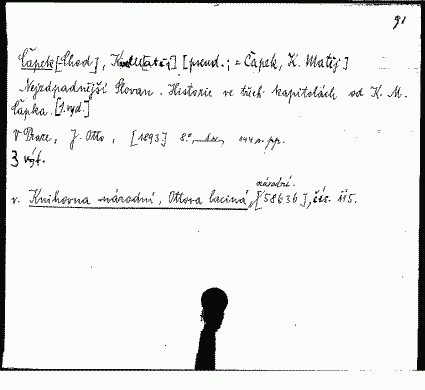 91
Čapek [Chod], K. Matěj [pseud.; = Čapek, K. Matěj]
Nejzápadnější Slovan. Historie ve třech kapitolách od K. M.
Čapka. [1. vyd.]
V Praze, J. Otto, [1893] 8°, 144 s. pp.
3 výt.
národní.
v. Knihovna národní, Ottova laciná, [58636], čís. 115.